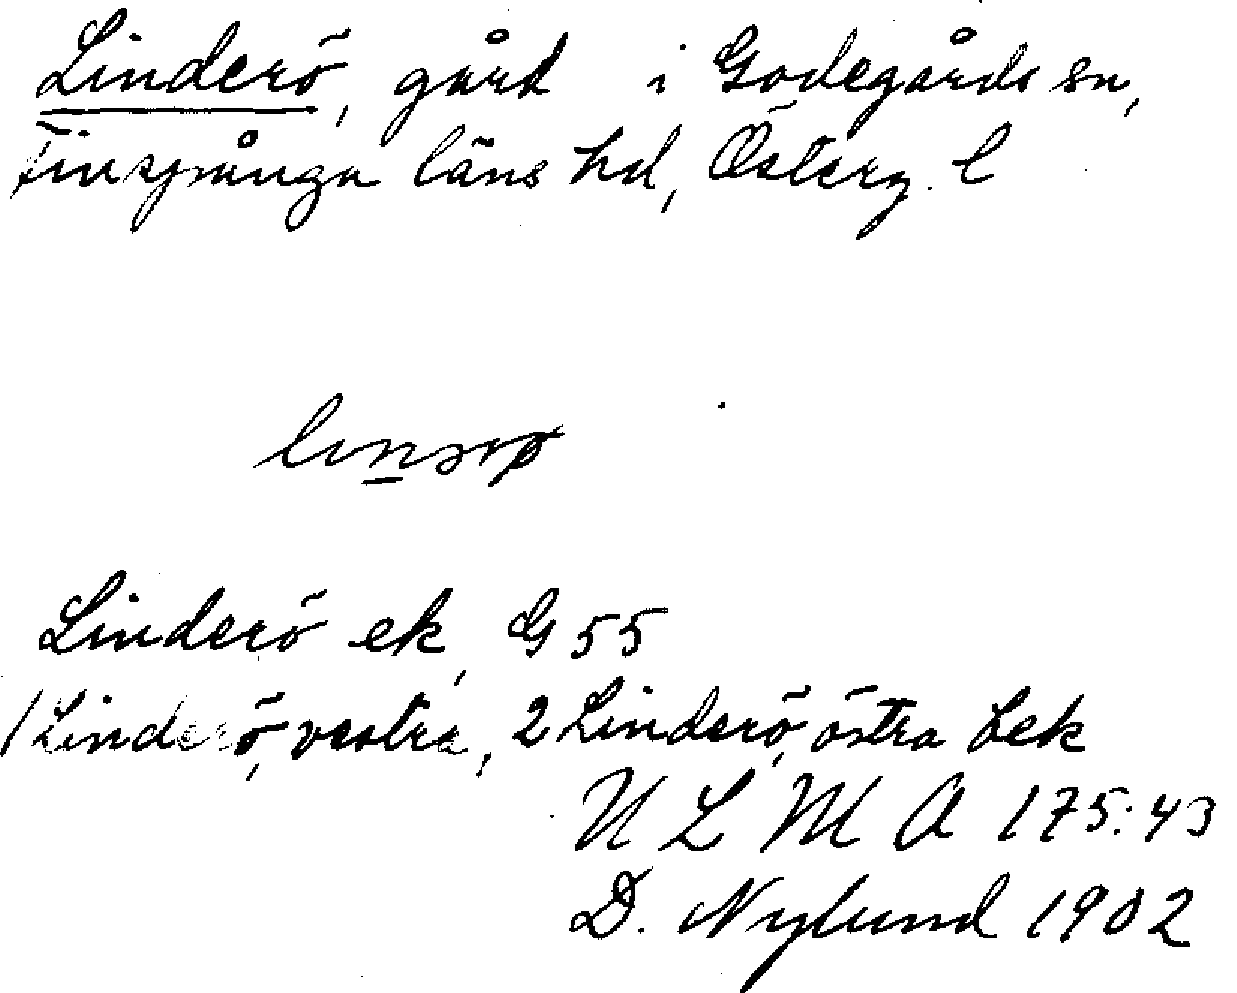 Linderö, gård i Godegårds sn,
Finspånga läns hd, Österg. l
Linderö ek, G 55
1 Linderö, vestra, 2 Linderö, östra Jek
U L M A 175:43
D. Nylund 1902